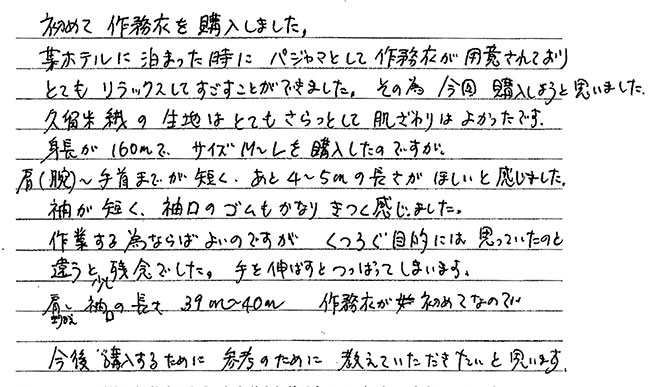 初めて 作務衣を購入しました。
某ホテルに泊まった時に パジャマとして作務衣が用意されており
とても リラックスしてすごすことができました。その為 今回 購入しようと思いました。
久留米織の生地はとてもさらっとして肌ざわりはよかったです。
身長が160mで、サイズM〜Lを購入したのですが、
肩(腕)〜手首までが短く、あと4〜5cmの長さがほしいと感じました。
袖が短く、袖口のゴムもかなりきつく感じました。
作業する為ならばよいのですが くつろぐ目的には思っていたのと
違うと少し残念でした。手を伸ばすとつっぱってしまいます。
肩 袖口の長さ 39cm〜40cm 作務衣が 初めてなので
今後 購入するために 参考のために 教えていただきたいと思います。